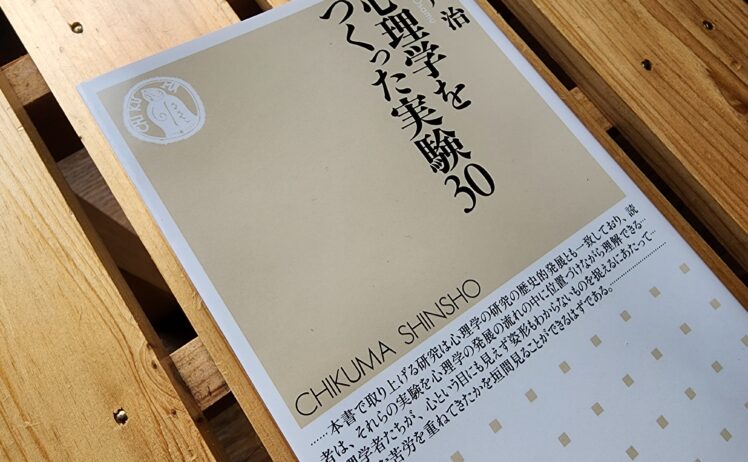 治
心理学を
つくった実験30
CHIKUMA SHINSHO
……本書で取り上げる研究は心理学の研究の歴史的発展とも一致しており、読
者は、それらの実験を心理学の発展の流れの中に位置づけながら理解できる…
理学者たちが、心という目にも見えず姿形もわからないものを捉えるにあたって…
苦労を重ねてきたかを垣間見ることができるはずである。……………